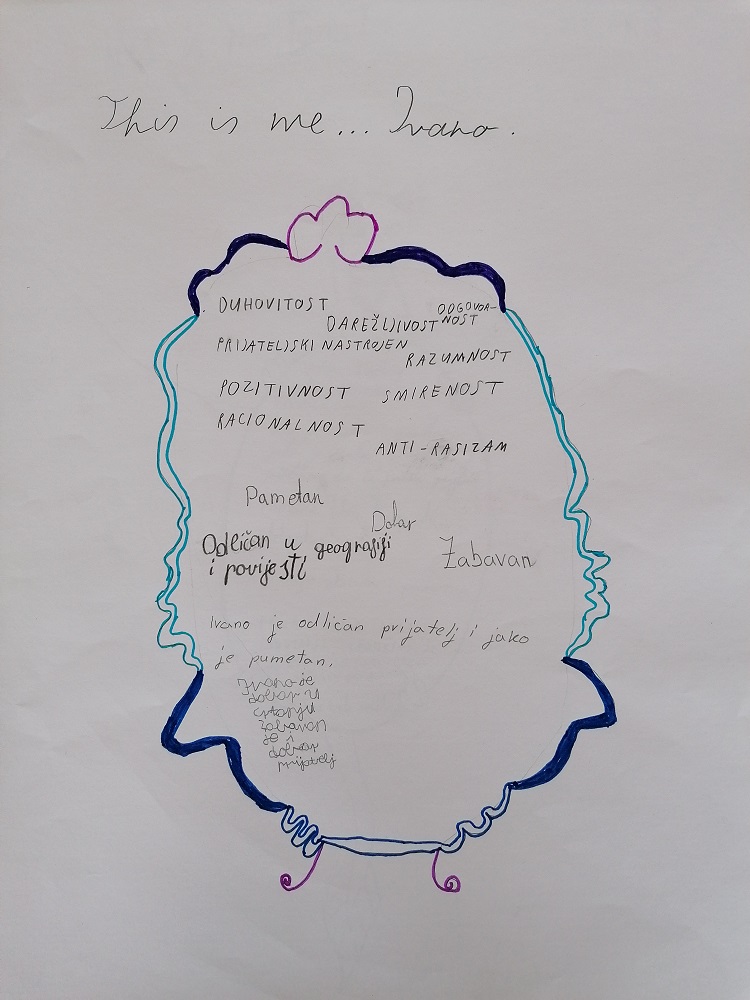 This is me... Ivano.
DUHOVITOST
ODGOVOR-
NOST
DAREŽLJIVOST
PRIJATELJSKI NASTROJEN
RAZUMNOST
POZITIVNOST
SMIRENOST
RACIONALNOST
ANTI-RASIZAM
Pametan
Dobar
Odličan u geografiji
i povijesti
Zabavan
Ivano je odličan prijatelj i jako
je pametan.
Ivano je
dobar u
crtanju
Zabavan
je i
dobar
prijatelj